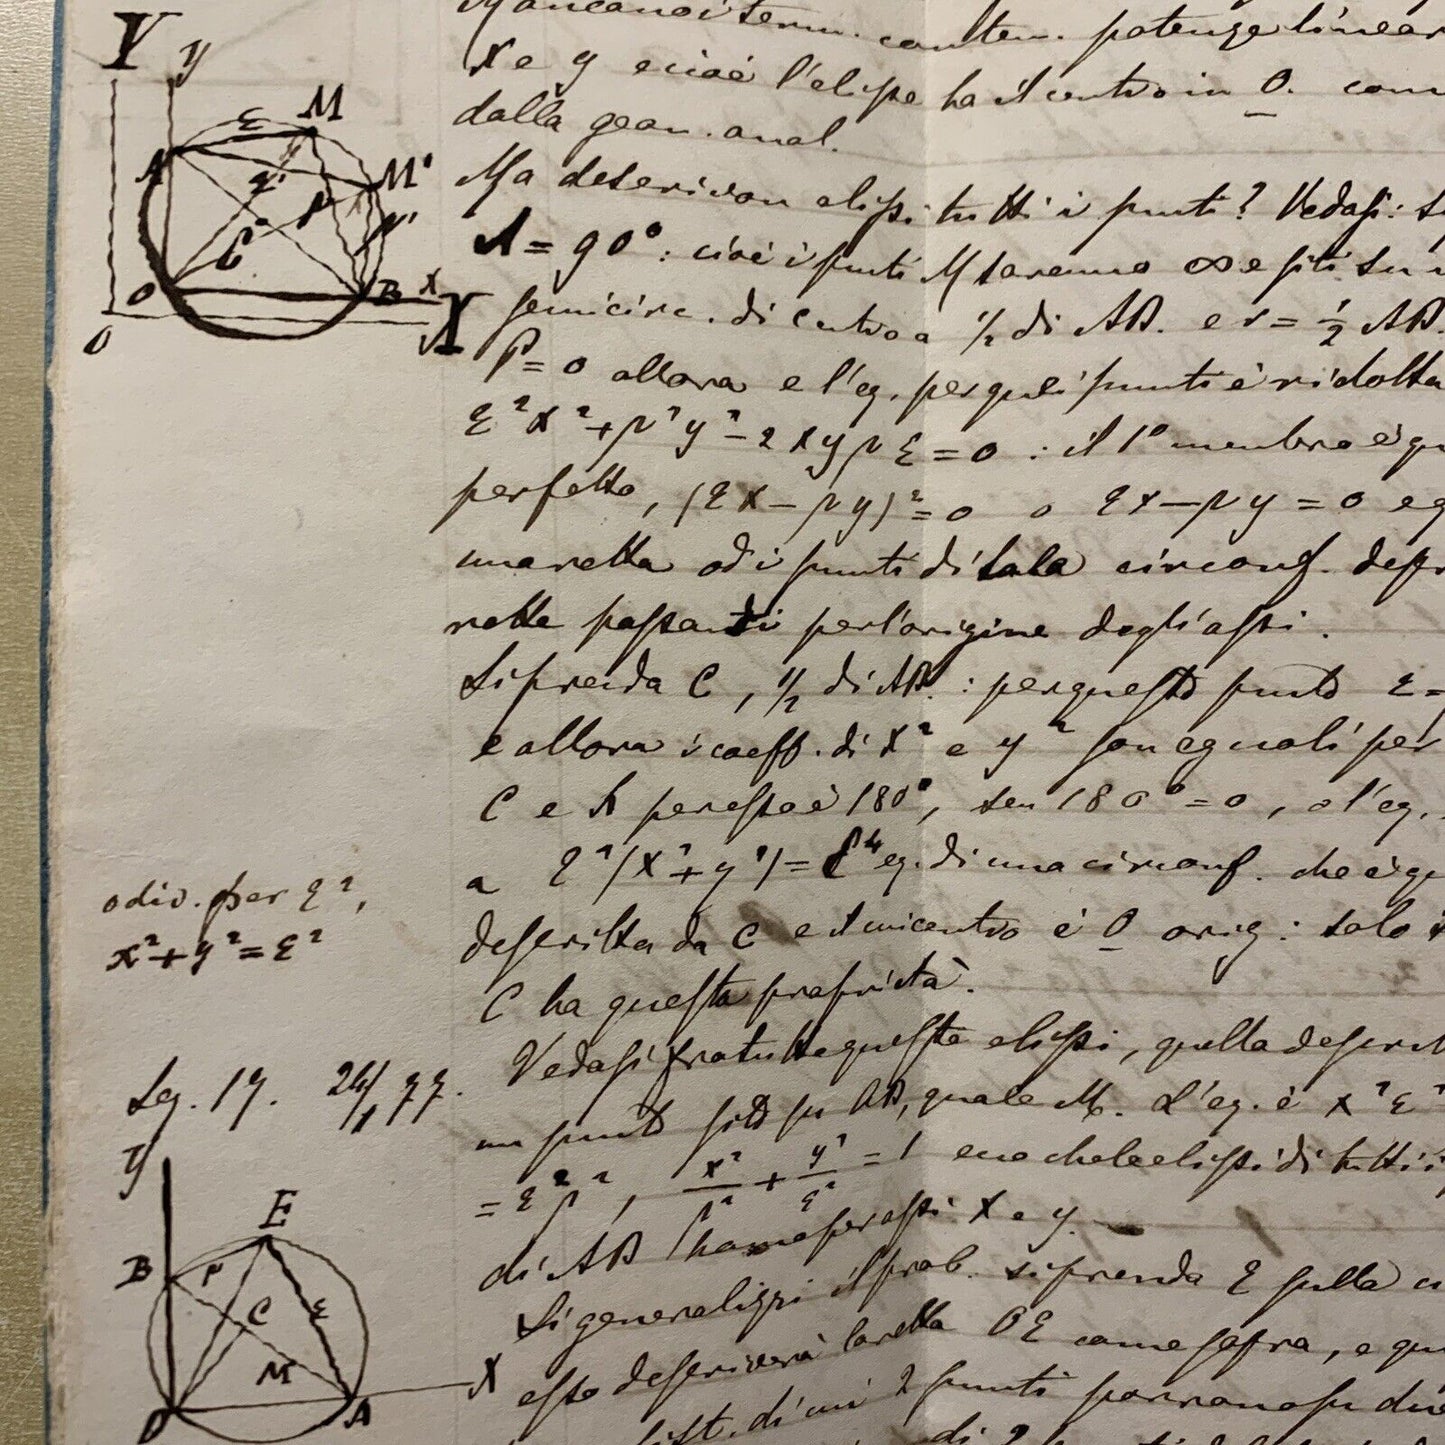 potenze linear
x e y e cioè l'elisse ha il centro in O. com
dalla geom. anal.
Ma descrivon elissi tutti i punti? Vedasi: s
A = 90°: cioè i punti M saranno ∞ e siti su u
semicirc. di centro a 1/2 di AB. e r = 1/2 AB.
P = 0 allora e l'eq. per quei punti è ridotta
ε²x² + p²y² - 2xypε = 0 : il 1° membro è qu
perfetto, (εx - py)² = 0 o εx - py = 0 eq
una retta od i punti di tale circonf. descr
rette passanti per l'origine degli assi.
Si prenda C, 1/2 di AB. : per questo punto ε =
e allora i coeff. di x² e y² son eguali per
C e A per esso è 180°, sen 180° = 0, e l'eq.
a ε²(x² + y²) = ε⁴ eq. di una circonf. che è qu
descritta da C e il cui centro è O orig: solo
C ha questa proprietà.
Vedasi fra tutte queste elissi, quella descrit
un punto sito su AB, quale M. L'eq. è x²ε²
= ε²p², x²/p² + y²/ε² = 1 ecco che le elissi di tutti i
di AB hanno per assi x e y.
Si generalizzi il prob. si prenda E sulla ci
esso descriverà la retta OE come sopra, e qu
dist. di cui 2 punti porranosi du
o div. per ε²,
x² + y² = ε²
Seg. 19.
Y
y
ε
M
A
M'
C
O
B
x
X
O
y
E
B
P
C
ε
M
X
O
A